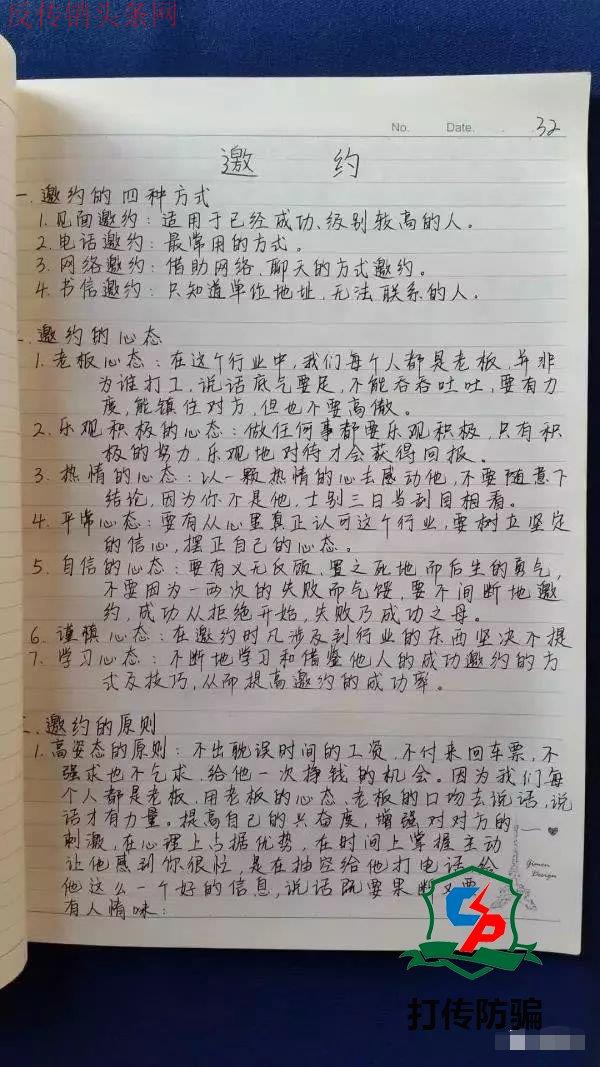 反传销头条网
No. Date. 32
邀 约
一.邀约的四种方式
1.见面邀约:适用于已经成功、级别较高的人。
2.电话邀约:最常用的方式。
3.网络邀约:借助网络、聊天的方式邀约。
4.书信邀约:只知道单位地址,无法联系的人。
二.邀约的心态
1.老板心态:在这个行业中,我们每个人都是老板,并非
为谁打工,说话底气要足,不能吞吞吐吐,要有力
度,能镇住对方,但也不要高傲。
2.乐观积极的心态:做任何事都要乐观积极,只有积
极的努力,乐观地对待才会获得回报。
3.热情的心态:以一颗热情的心去感动他,不要随意下
结论,因为你不是他,士别三日当刮目相看。
4.平常心态:要有从心里真正认可这个行业,要树立坚定
的信心,摆正自己的心态。
5.自信的心态:要有义无反顾,置之死地而后生的勇气,
不要因为一两次的失败而气馁,要不间断地邀
约,成功从拒绝开始,失败乃成功之母。
6.谨慎心态:在邀约时凡涉及到行业的东西坚决不提
7.学习心态:不断地学习和借鉴他人的成功邀约的方
式及技巧,从而提高邀约的成功率。
三.邀约的原则
1.高姿态的原则:不出耽误时间的工资,不付来回车票,不
强求也不乞求,给他一次挣钱的机会。因为我们每
个人都是老板,用老板的心态、老板的口吻去说话,说
话才有力量。提高自己的兴奋度,增强对对方的
刺激,在心理上占据优势,在时间上掌握主动
让他感到你很忙,是在抽空给他打电话,给
他这么一个好的信息,说话既要果断又要
有人情味:
Gimen
Design
CP
打传防骗